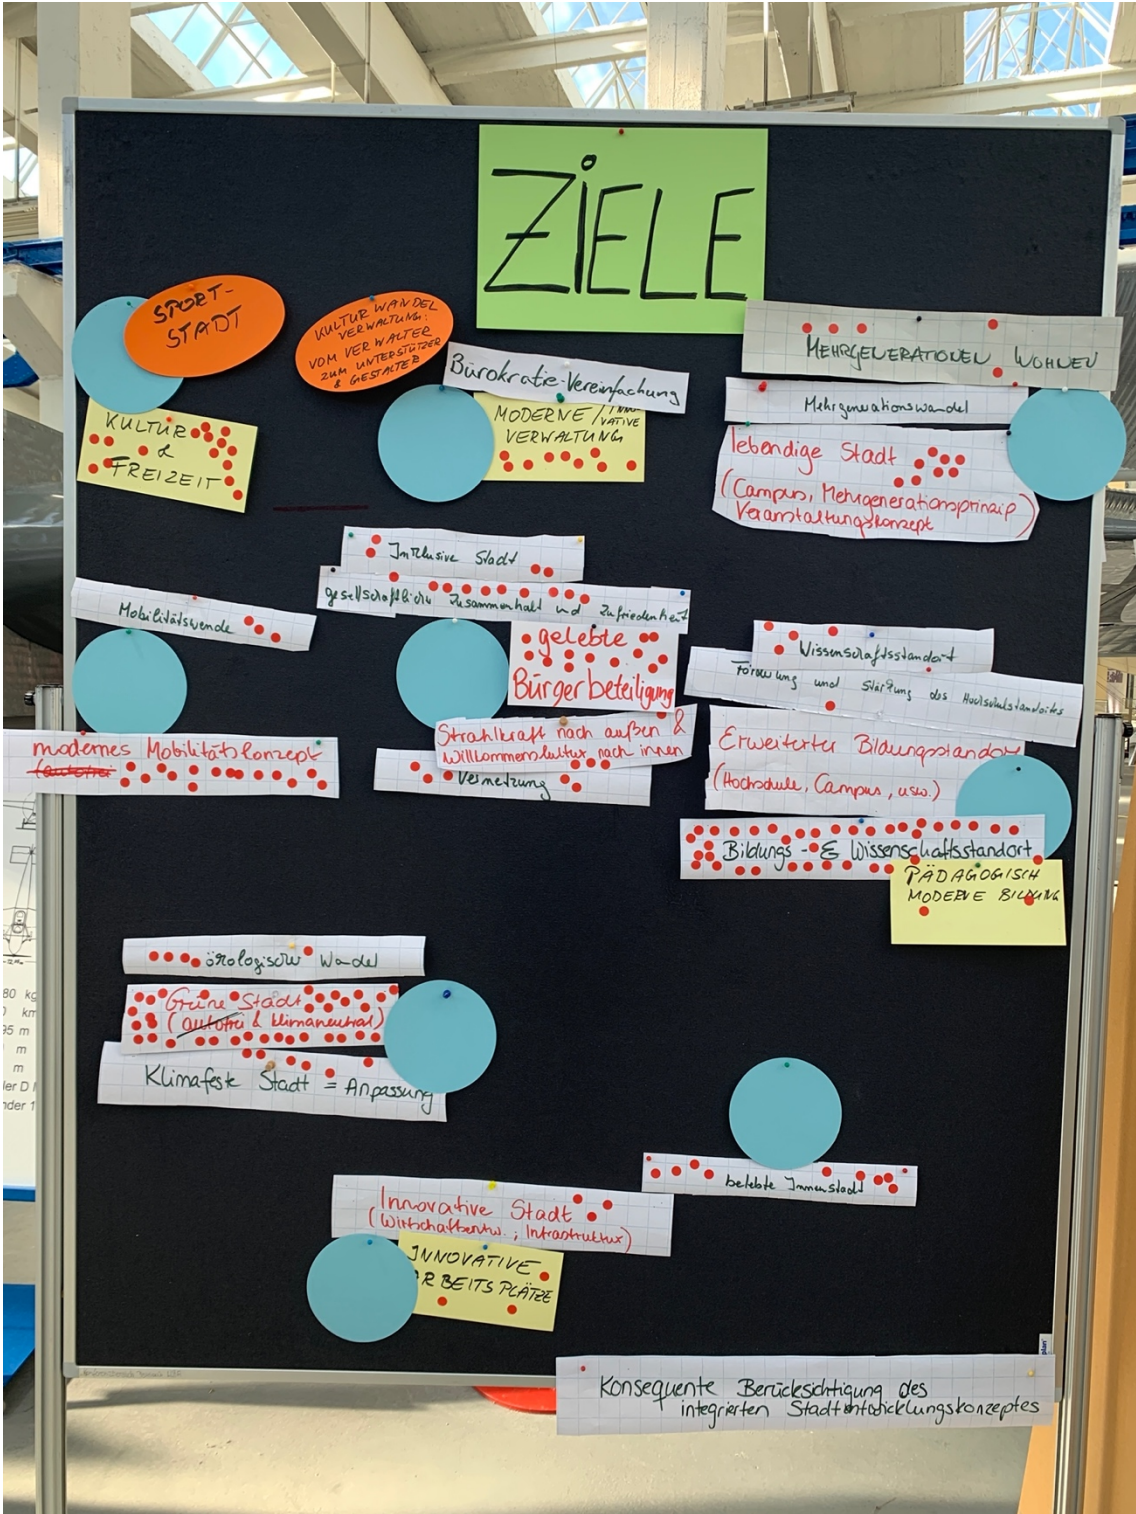 ZIELE
SPORT-
STADT
KULTURWANDEL
VERWALTUNG:
VOM VERWALTER
ZUM UNTERSTÜTZER
& GESTALTER
KULTUR
&
FREIZEIT
Bürokratie-Vereinfachung
MODERNE/INNO
VATIVE
VERWALTUNG
MEHRGENERATIONEN WOHNEN
Mehrgenerationswandel
lebendige Stadt
(Campus, Mehrgenerationsprinzip
Veranstaltungskonzept)
Inklusive Stadt
gesellschaftlicher Zusammenhalt und Zufriedenheit
gelebte
Bürgerbeteiligung
Strahlkraft nach außen &
Willkommenskultur nach innen
Vernetzung
Mobilitätswende
modernes Mobilitätskonzept
(autofrei
Wissenschaftsstandort
Förderung und Stärkung des Hochschulstandortes
Erweiterter Bildungsstandort
(Hochschule, Campus, usw.)
Bildungs- & Wissenschaftsstandort
PÄDAGOGISCH
MODERNE BILDUNG
ökologischer Wandel
Grüne Stadt
(autofrei & klimaneutral)
Klimafeste Stadt = Anpassung
belebte Innenstadt
Innovative Stadt
(Wirtschaftsentw.; Infrastruktur)
INNOVATIVE
ARBEITSPLÄTZE
Konsequente Berücksichtigung des
integrierten Stadtentwicklungskonzeptes
80 kg
km
95 m
m
m
der D
nder 1